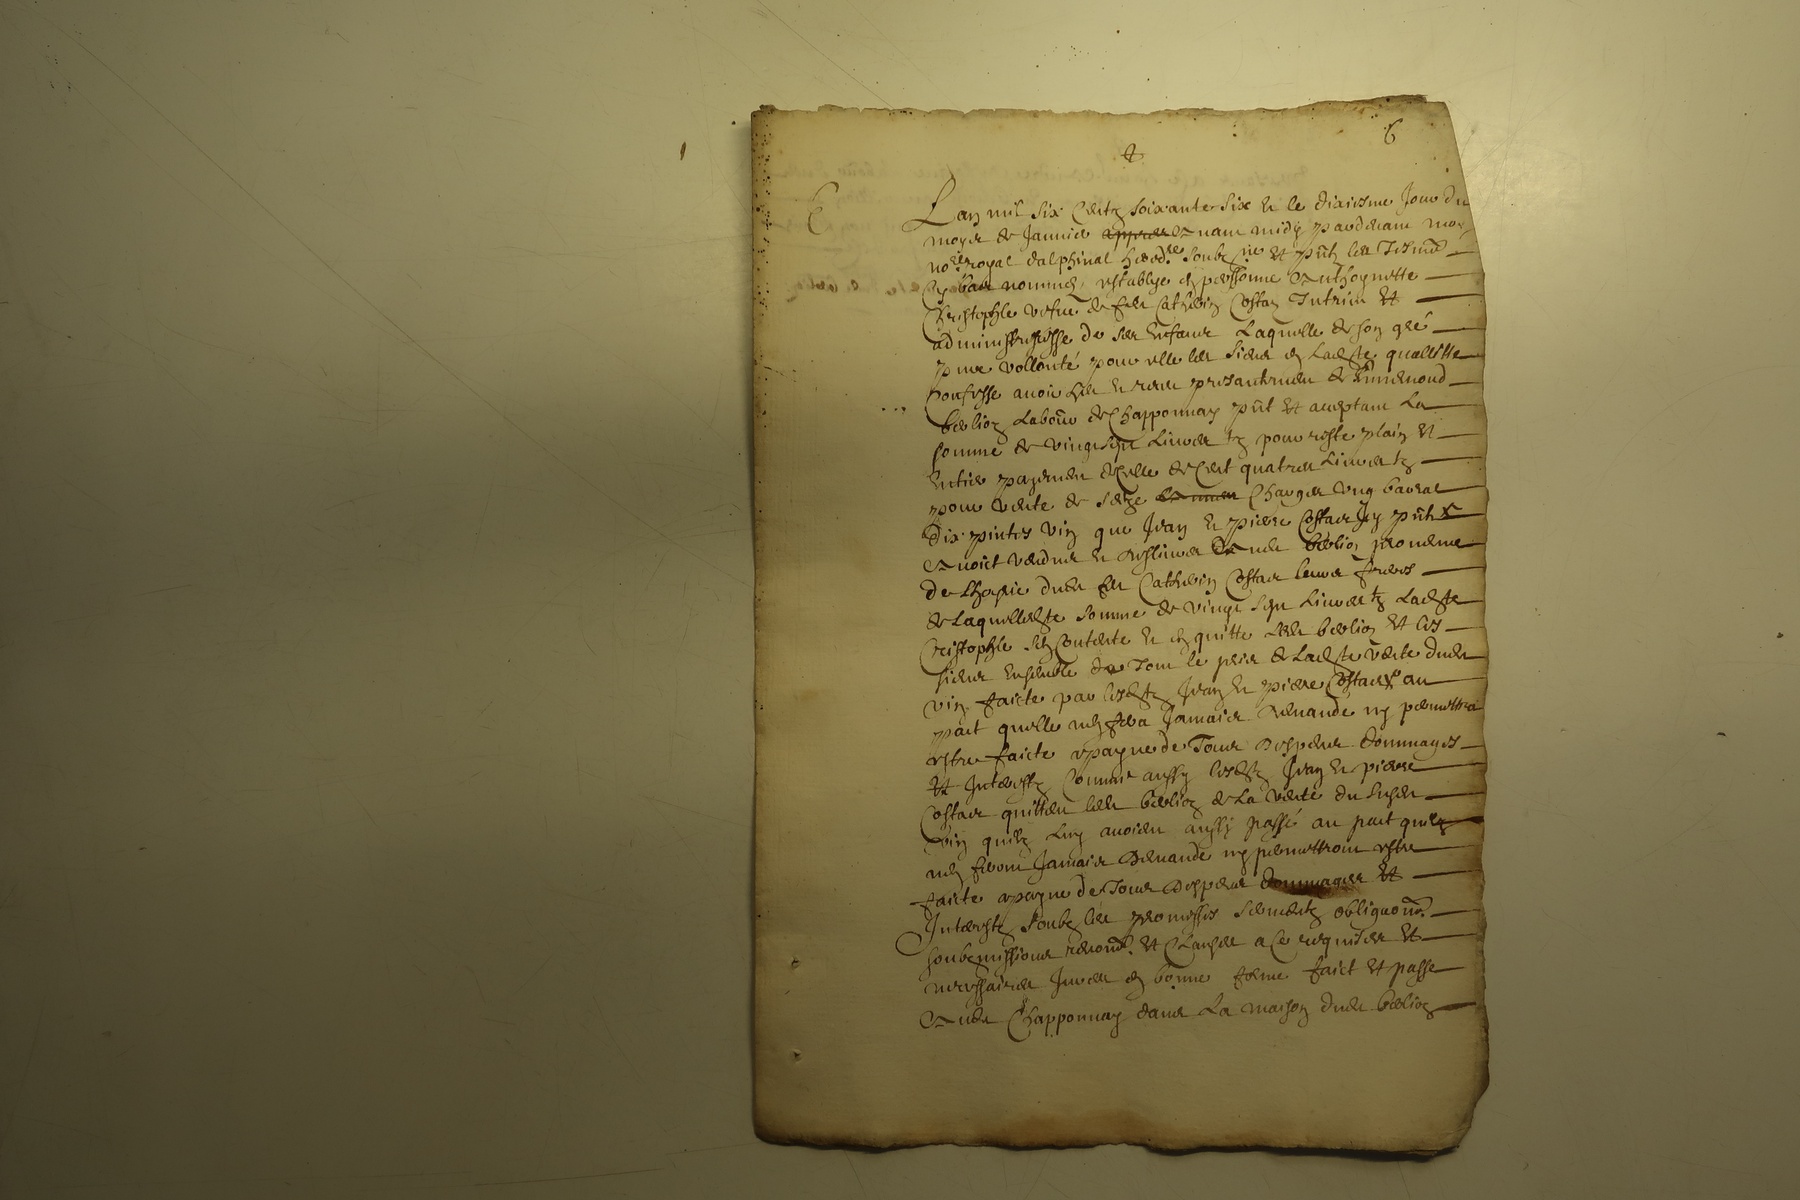 6
Lan mil six centz soixante six et le dixiesme Jour du
moys de Janvier avant midy pardevant moy
no.re royal dalphinal hered.re soubz.ne et pnt les tesmoins
Cy bas nommes, establye en personne Anthoynette
Christophle vefue de feu Catherin Costaz Tutrice et
administreresse de ses enfans Laquelle de son gré
pure vollonté pour elle les siens en ladite quallitte
Confesse avoir heu et receu presantement de
berlioz Labour de Chapponnay pnt et aceptant La
somme de vingt sept Livres tz pour reste plain et
entier payement de celle de Cent quatre Livres tz
pour vente de seize Charges ung barral
dix pintes vin que Jean et pierre Costaz Icy pntz
avoict vendus et deslivres audit berlioz provenue
de Lhoyrie dudit feu Catherin Costaz leur freres
de Laquelledite somme de vingt sept Livres tz Ladite
Cristophle sen Contente et en quitte ledit berlioz et les
siens ensemble de tout le prix de Ladite vente dudit
vin faicte par lesditz Jean et pierre Costaz au
pact quelle nen fera Jamais demande ny permettra
estre faicte a payne de tous despens dommages
et Interestz Comme aussy lesditz Jean et pierre
Costaz quittent ledit berlioz de La vente du susdit
vin quilz Luy avoient aussy passé au pact quilz
nen feront Jamais demande ny permettront estre
faicte a payne de tous despens dommages et
Interestz soubz les promesses sermentz obligaons
soubzmissions renonons et Clauses a ce requises et
necessaires Jures en bonne forme faict et passe
audit Chapponnay dans La maison dudit berlioz